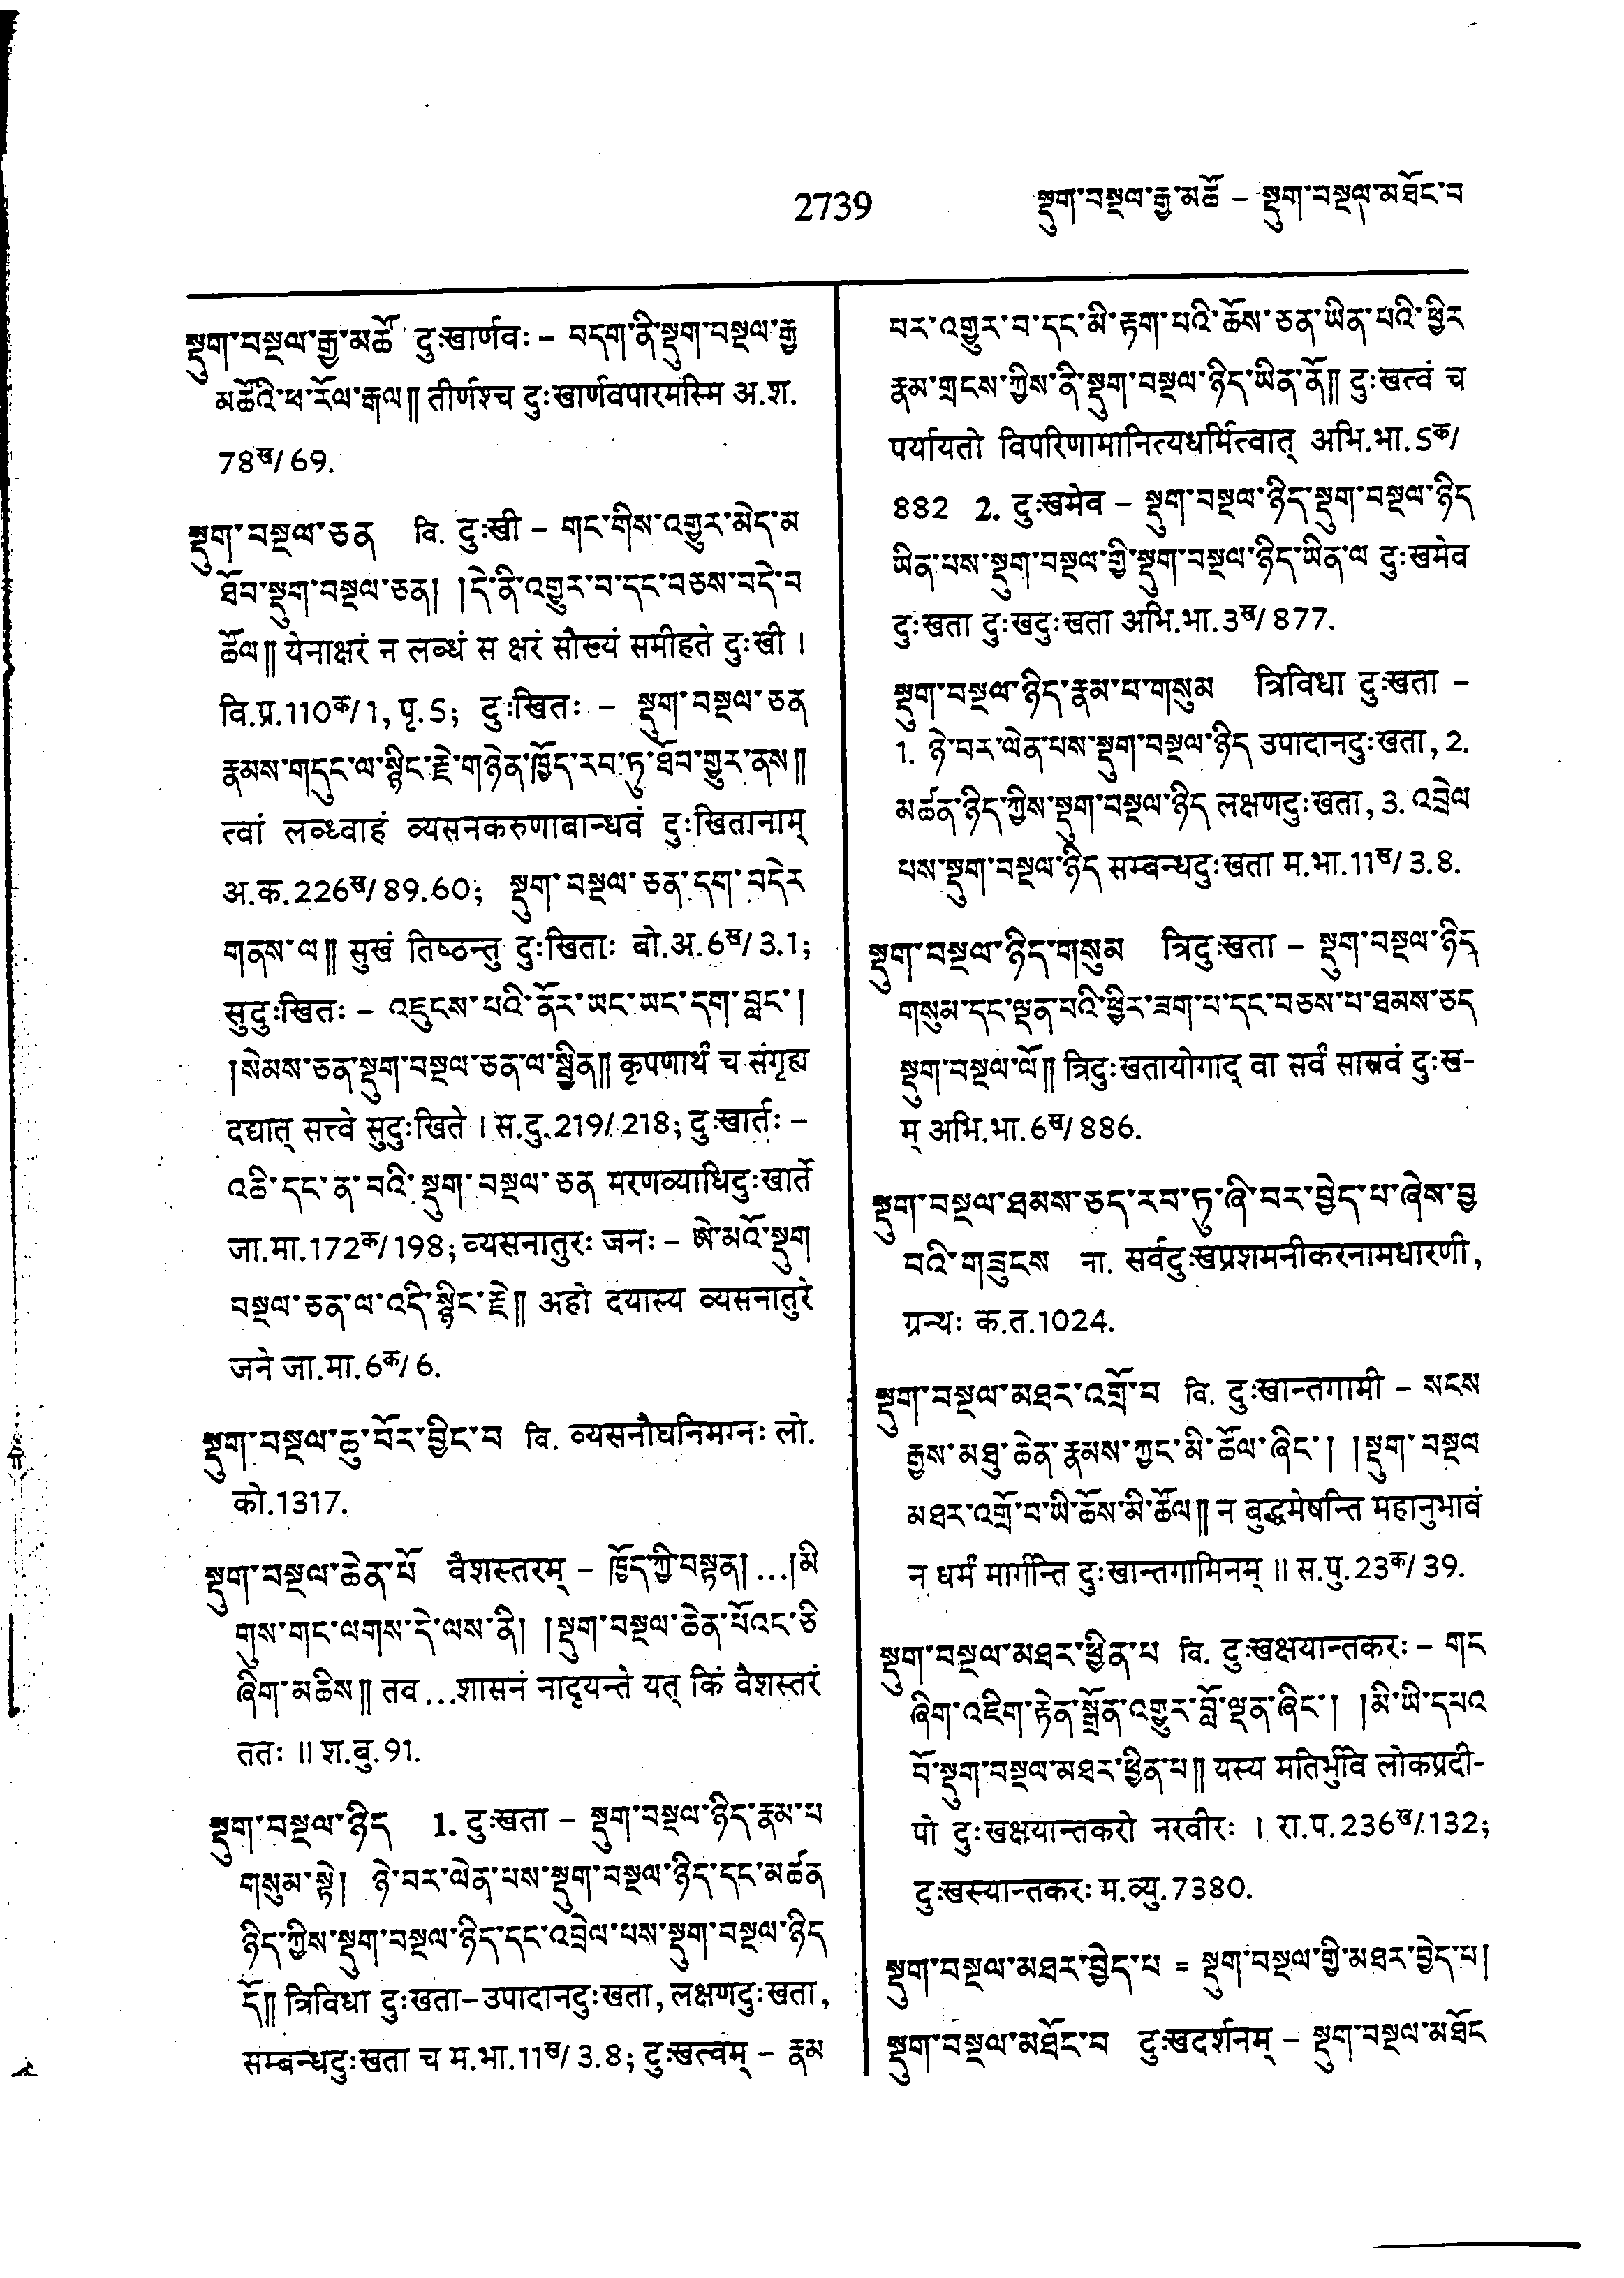 2739
སྡུག་བསྔལ་རྒྱ་མཚོ – སྡུག་བསྔལ་མཐོང་བ
སྡུག་བསྔལ་རྒྱ་མཚོ दुःखार्णवः – བདག་ནི་སྡུག་བསྔལ་རྒྱ
མཚོའི་ཕ་རོལ་རྒལ།། तीर्णश्च दुःखार्णवपारमस्मि अ.श.
78ख/69.
སྡུག་བསྔལ་ཅན वि. दुःखी – གང་གིས་འགྱུར་མེད་མ
ཐོབ་སྡུག་བསྔལ་ཅན། །དེ་ནི་འགྱུར་བ་དང་བཅས་བདེ་བ
ཚོལ།། येनाक्षरं न लब्धं स क्षरं सौख्यं समीहते दुःखी ।
वि.प्र.110क/1, पृ.5; दुःखितः – སྡུག་བསྔལ་ཅན
རྣམས་གདུང་ལ་སྙིང་རྗེ་གཉེན་ཁྱོད་རབ་ཏུ་ཐོབ་གྱུར་ནས།།
त्वां लब्ध्वाहं व्यसनकरुणाबान्धवं दुःखितानाम्
अ.क.226ख/89.60; སྡུག་བསྔལ་ཅན་དག་བདེར
གནས་ལ།། सुखं तिष्ठन्तु दुःखिताः बो.अ.6ख/3.1;
सुदुःखितः – འཇུངས་པའི་ནོར་ཡང་ཡང་དག་བླང་།
།སེམས་ཅན་སྡུག་བསྔལ་ཅན་ལ་སྦྱིན།། कृपणार्थं च संगृह्य
दद्यात् सत्त्वे सुदुःखिते । स.दु.219/218; दुःखार्तः –
འཆི་དང་ན་བའི་སྡུག་བསྔལ་ཅན मरणव्याधिदुःखार्ते
जा.मा.172क/198; व्यसनातुरः जनः – ཨེ་མའོ་སྡུག
བསྔལ་ཅན་ལ་འདི་སྙིང་རྗེ།། अहो दयास्य व्यसनातुरे
जने जा.मा.6क/6.
སྡུག་བསྔལ་ཆུ་བོར་བྱིང་བ वि. व्यसनौघनिमग्नः लो.
को.1317.
སྡུག་བསྔལ་ཆེན་པོ वैशस्तरम् – ཁྱོད་ཀྱི་བསྟན། ...།མི
གུས་གང་ལགས་དེ་ལས་ནི། །སྡུག་བསྔལ་ཆེན་པོའང་ཅི
ཞིག་མཆིས།། तव ...शासनं नादृयन्ते यत् किं वैशस्तरं
ततः ॥ श.बु.91.
སྡུག་བསྔལ་ཉིད 1. दुःखता – སྡུག་བསྔལ་ཉིད་རྣམ་པ
གསུམ་སྟེ། ཉེ་བར་ལེན་པས་སྡུག་བསྔལ་ཉིད་དང་མཚན
ཉིད་ཀྱིས་སྡུག་བསྔལ་ཉིད་དང་འབྲེལ་པས་སྡུག་བསྔལ་ཉིད
དོ།། त्रिविधा दुःखता–उपादानदुःखता, लक्षणदुःखता,
सम्बन्धदुःखता च म.भा.11ख/3.8; दुःखत्वम् – རྣམ
པར་འགྱུར་བ་དང་མི་རྟག་པའི་ཆོས་ཅན་ཡིན་པའི་ཕྱིར
རྣམ་གྲངས་ཀྱིས་ནི་སྡུག་བསྔལ་ཉིད་ཡིན་ནོ།། दुःखत्वं च
पर्यायतो विपरिणामानित्यधर्मित्वात् अभि.भा.5क/
882 2. दुःखमेव – སྡུག་བསྔལ་ཉིད་སྡུག་བསྔལ་ཉིད
ཡིན་པས་སྡུག་བསྔལ་གྱི་སྡུག་བསྔལ་ཉིད་ཡིན་ལ दुःखमेव
दुःखता दुःखदुःखता अभि.भा.3ख/877.
སྡུག་བསྔལ་ཉིད་རྣམ་པ་གསུམ त्रिविधा दुःखता –
1. ཉེ་བར་ལེན་པས་སྡུག་བསྔལ་ཉིད उपादानदुःखता, 2.
མཚན་ཉིད་ཀྱིས་སྡུག་བསྔལ་ཉིད लक्षणदुःखता, 3. འབྲེལ
པས་སྡུག་བསྔལ་ཉིད सम्बन्धदुःखता म.भा.11ख/3.8.
སྡུག་བསྔལ་ཉིད་གསུམ त्रिदुःखता – སྡུག་བསྔལ་ཉིད
གསུམ་དང་ལྡན་པའི་ཕྱིར་ཟག་པ་དང་བཅས་པ་ཐམས་ཅད
སྡུག་བསྔལ་ལོ།། त्रिदुःखतायोगाद् वा सर्वं सास्रवं दुःख-
म् अभि.भा.6ख/886.
སྡུག་བསྔལ་ཐམས་ཅད་རབ་ཏུ་ཞི་བར་བྱེད་པ་ཞེས་བྱ
བའི་གཟུངས ना. सर्वदुःखप्रशमनीकरनामधारणी,
ग्रन्थः क.त.1024.
སྡུག་བསྔལ་མཐར་འགྲོ་བ वि. दुःखान्तगामी – སངས
རྒྱས་མཐུ་ཆེན་རྣམས་ཀྱང་མི་ཚོལ་ཞིང་། །སྡུག་བསྔལ
མཐར་འགྲོ་བ་ཡི་ཆོས་མི་ཚོལ།། न बुद्धमेषन्ति महानुभावं
न धर्मं मार्गन्ति दुःखान्तगामिनम् ॥ स.पु.23क/39.
སྡུག་བསྔལ་མཐར་ཕྱིན་པ वि. दुःखक्षयान्तकरः – གང
ཞིག་འཇིག་རྟེན་སྒྲོན་འགྱུར་བློ་ལྡན་ཞིང་། །མི་ཡི་དཔའ
བོ་སྡུག་བསྔལ་མཐར་ཕྱིན་པ།། यस्य मतिर्भुवि लोकप्रदी-
पो दुःखक्षयान्तकरो नरवीरः । रा.प.236ख/132;
दुःखस्यान्तकरः म.व्यु.7380.
སྡུག་བསྔལ་མཐར་བྱེད་པ = སྡུག་བསྔལ་གྱི་མཐར་བྱེད་པ།
སྡུག་བསྔལ་མཐོང་བ दुःखदर्शनम् – སྡུག་བསྔལ་མཐོང